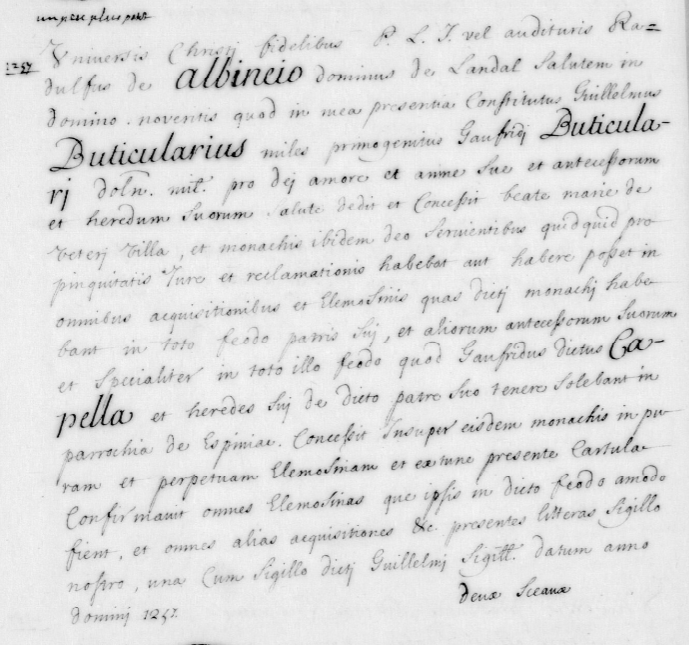 un peu plus petit
1257
Universis Christj fidelibus P. L. J. vel audituris Ra=
dulfus de Albineio dominus de Landal Salutem in
domino. noveritis quod in mea presentia Constitutus Guillelmus
Buticularius miles primogenitus Gaufridj Buticula-
rj doln. mil. pro dej amore et anime Sue et antecessorum
et heredum Suorum Salute dedit et Concessit beate marie de
veterj villa, et monachis ibidem deo Servientibus quidquid pro
pinquitatis Jure et reclamationis habebat aut habere posset in
omnibus acquisitionibus et Elemosinis quas dictj monachj habe
bant in toto feodo patris Suj, et aliorum antecessorum Suorum
et Specialiter in toto illo feodo quod Gaufridus dictus Ca-
pella et heredes Suj de dicto patre Suo tenere Solebant in
parrochia de Espiniac. Concessit Insuper eisdem monachis in pu
ram et perpetuam Elemosinam et ex tunc presente Cartula
Confirmavit omnes Elemosinas que ipsis in dicto feodo amodo
fient, et omnes alias acquisitiones &c presentes litteras Sigillo
nostro, una Cum Sigillo dictj Guillelmj Sigill. datum anno
dominj 1257.
deux Sceaux